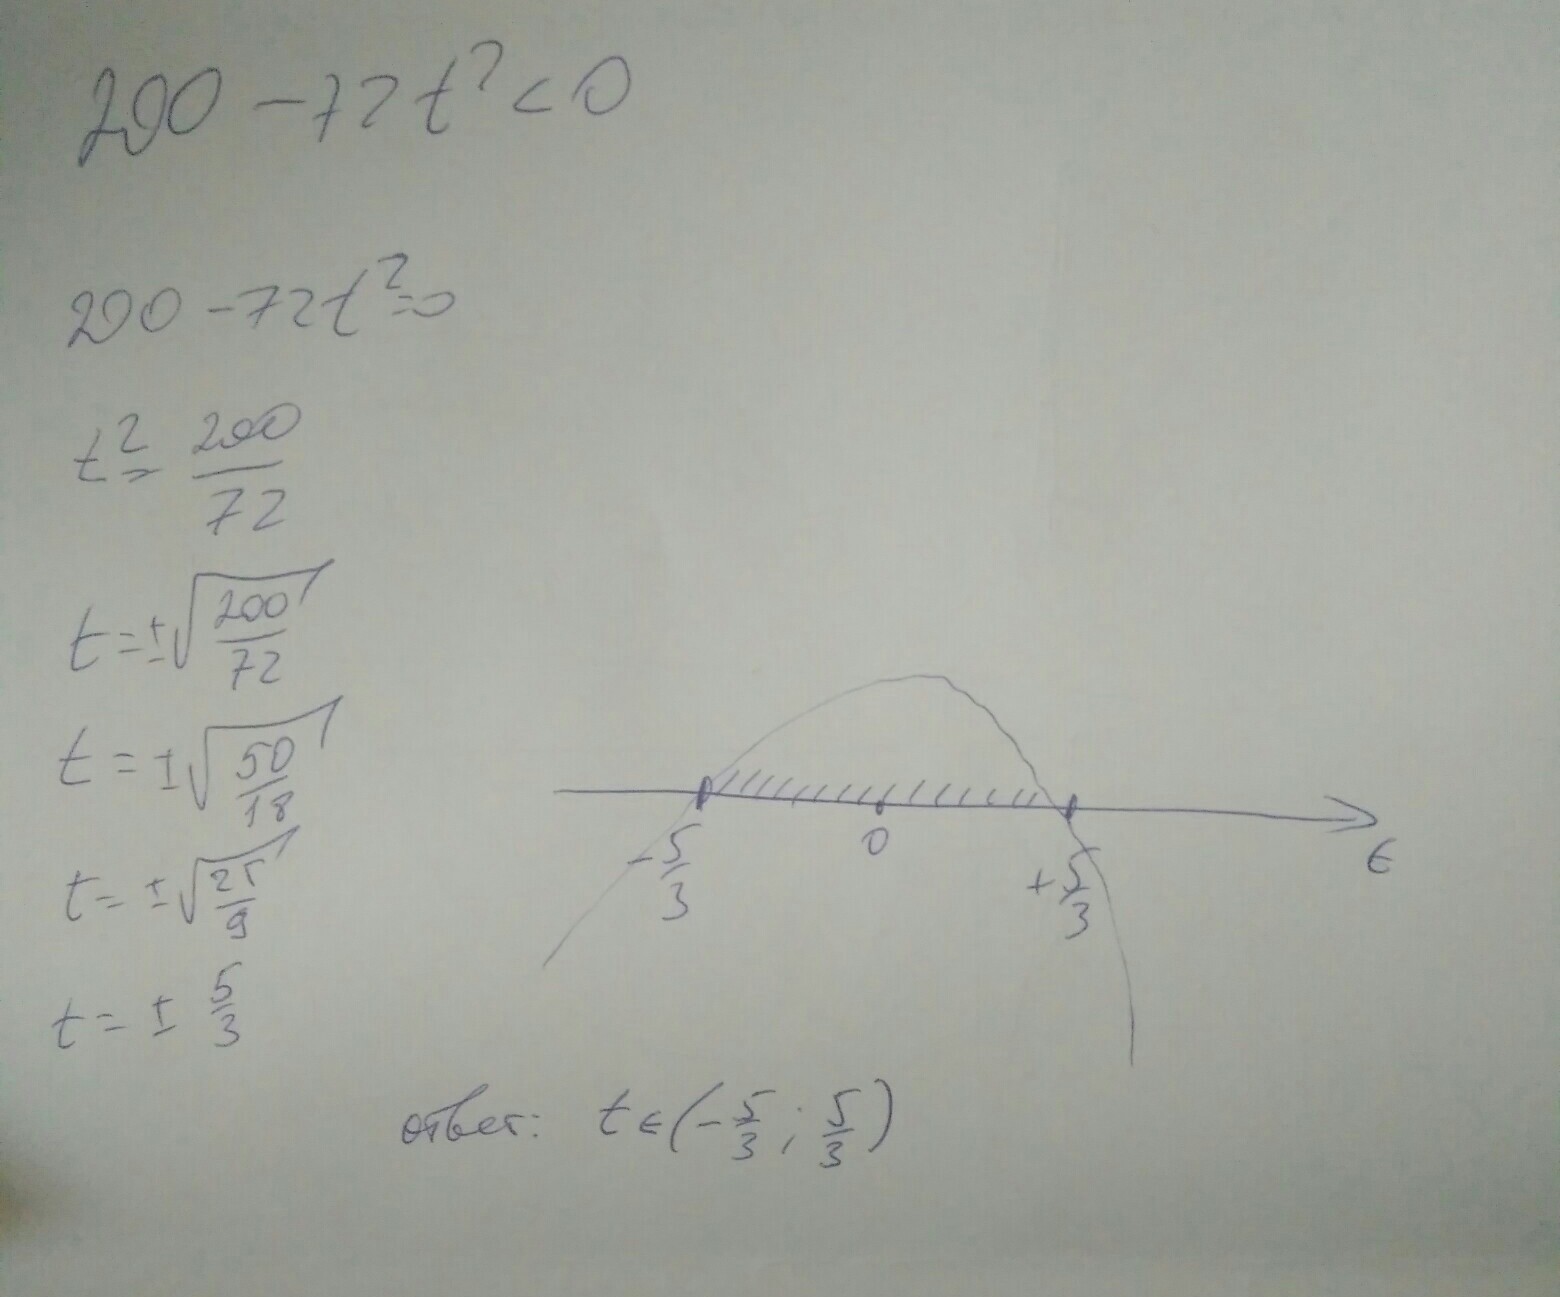 200 - 72t² < 0
200 - 72t² = 0
t² = 200/72
t = ±√(200/72)
t = ±√(50/18)
t = ±√(25/9)
t = ± 5/3
-5/3 0 +5/3 t
ответ: t ∈ (-5/3 ; 5/3)